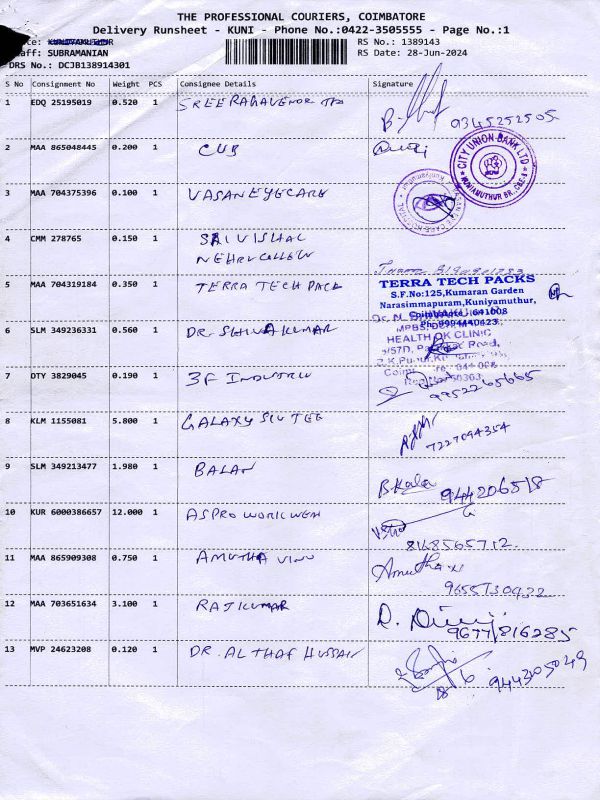 THE PROFESSIONAL COURIERS, COIMBATORE
Delivery Runsheet - KUNI - Phone No.:0422-3505555 - Page No.:1
RS No.: 1389143
aff: SUBRAMANIAN
RS Date: 28-Jun-2024
DRS No.: DCJB138914301
S No Consignment No Weight PCS Consignee Details Signature
1 EDQ 25195019 0.520 1
9345252505
2 MAA 865048445 0.200 1 CUB
CITY UNION BANK LTD
KUNIYAMUTHUR BR., CBE-8
3 MAA 704375396 0.100 1 VASAN EYE CARE
4 CMM 278765 0.150 1 SAI VISHAL
5 MAA 704319184 0.350 1 TERRA TECH PACK
TERRA TECH PACKS
S.F.No:125,Kumaran Garden
Narasimmapuram,Kuniyamuthur,
Coimbatore, 641008
6 SLM 349236331 0.560 1 DR. SHIVAKUMAR
HEALTH OK CLINIC
7 DTY 3829045 0.190 1 3F
9952265665
8 KLM 1155081 5.800 1 GALAXY
7227094354
9 SLM 349213477 1.980 1 BALAN
B.Kala 944206518
10 KUR 6000386657 12.000 1 ASPRO
8148565712
11 MAA 865909308 0.750 1 AMUTHA
Amutha
12 MAA 703651634 3.100 1 RAJKUMAR
9677816285
13 MVP 24623208 0.120 1 DR. ALTHAF HUSSAIN
944305049